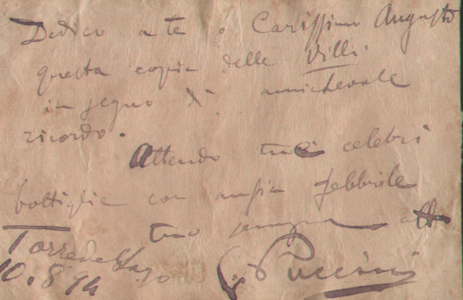 Dedico a te o Carissimo Augusto
questa copia delle Villi
in segno di amichevole
ricordo.
Attendo tue celebri
bottiglie con ansia febbrile
tuo sempre aff
Torre del Lago G Puccini
10.8.94